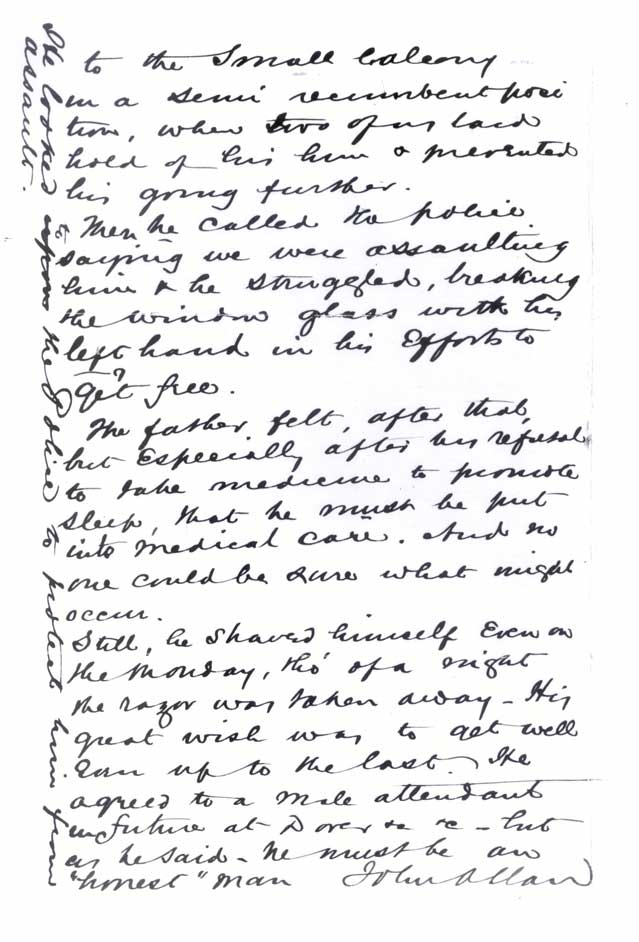 to the Small balcony
in a semi recumbent posi
tion, when two of us laid
hold of his him & prevented
his going further.
Then he called to police
saying we were assaulting
him & he struggled, breaking
the window glass with his
left hand in his Efforts to
get free.
The father felt, after that,
but Especially after his refusal
to take medicine to promote
sleep, that he must be put
into medical care. And no
one could be sure what might
occur.
Still, he Shaved himself Even on
the Monday, tho' of a night
the razor was taken away - His
great wish was to get well
Even up to the last. He
agreed to a male attendant
in future at Dover &c &c - but
as he said - he must be an
"honest" man John Allan
He looked upon the Police to protect him from
assault.